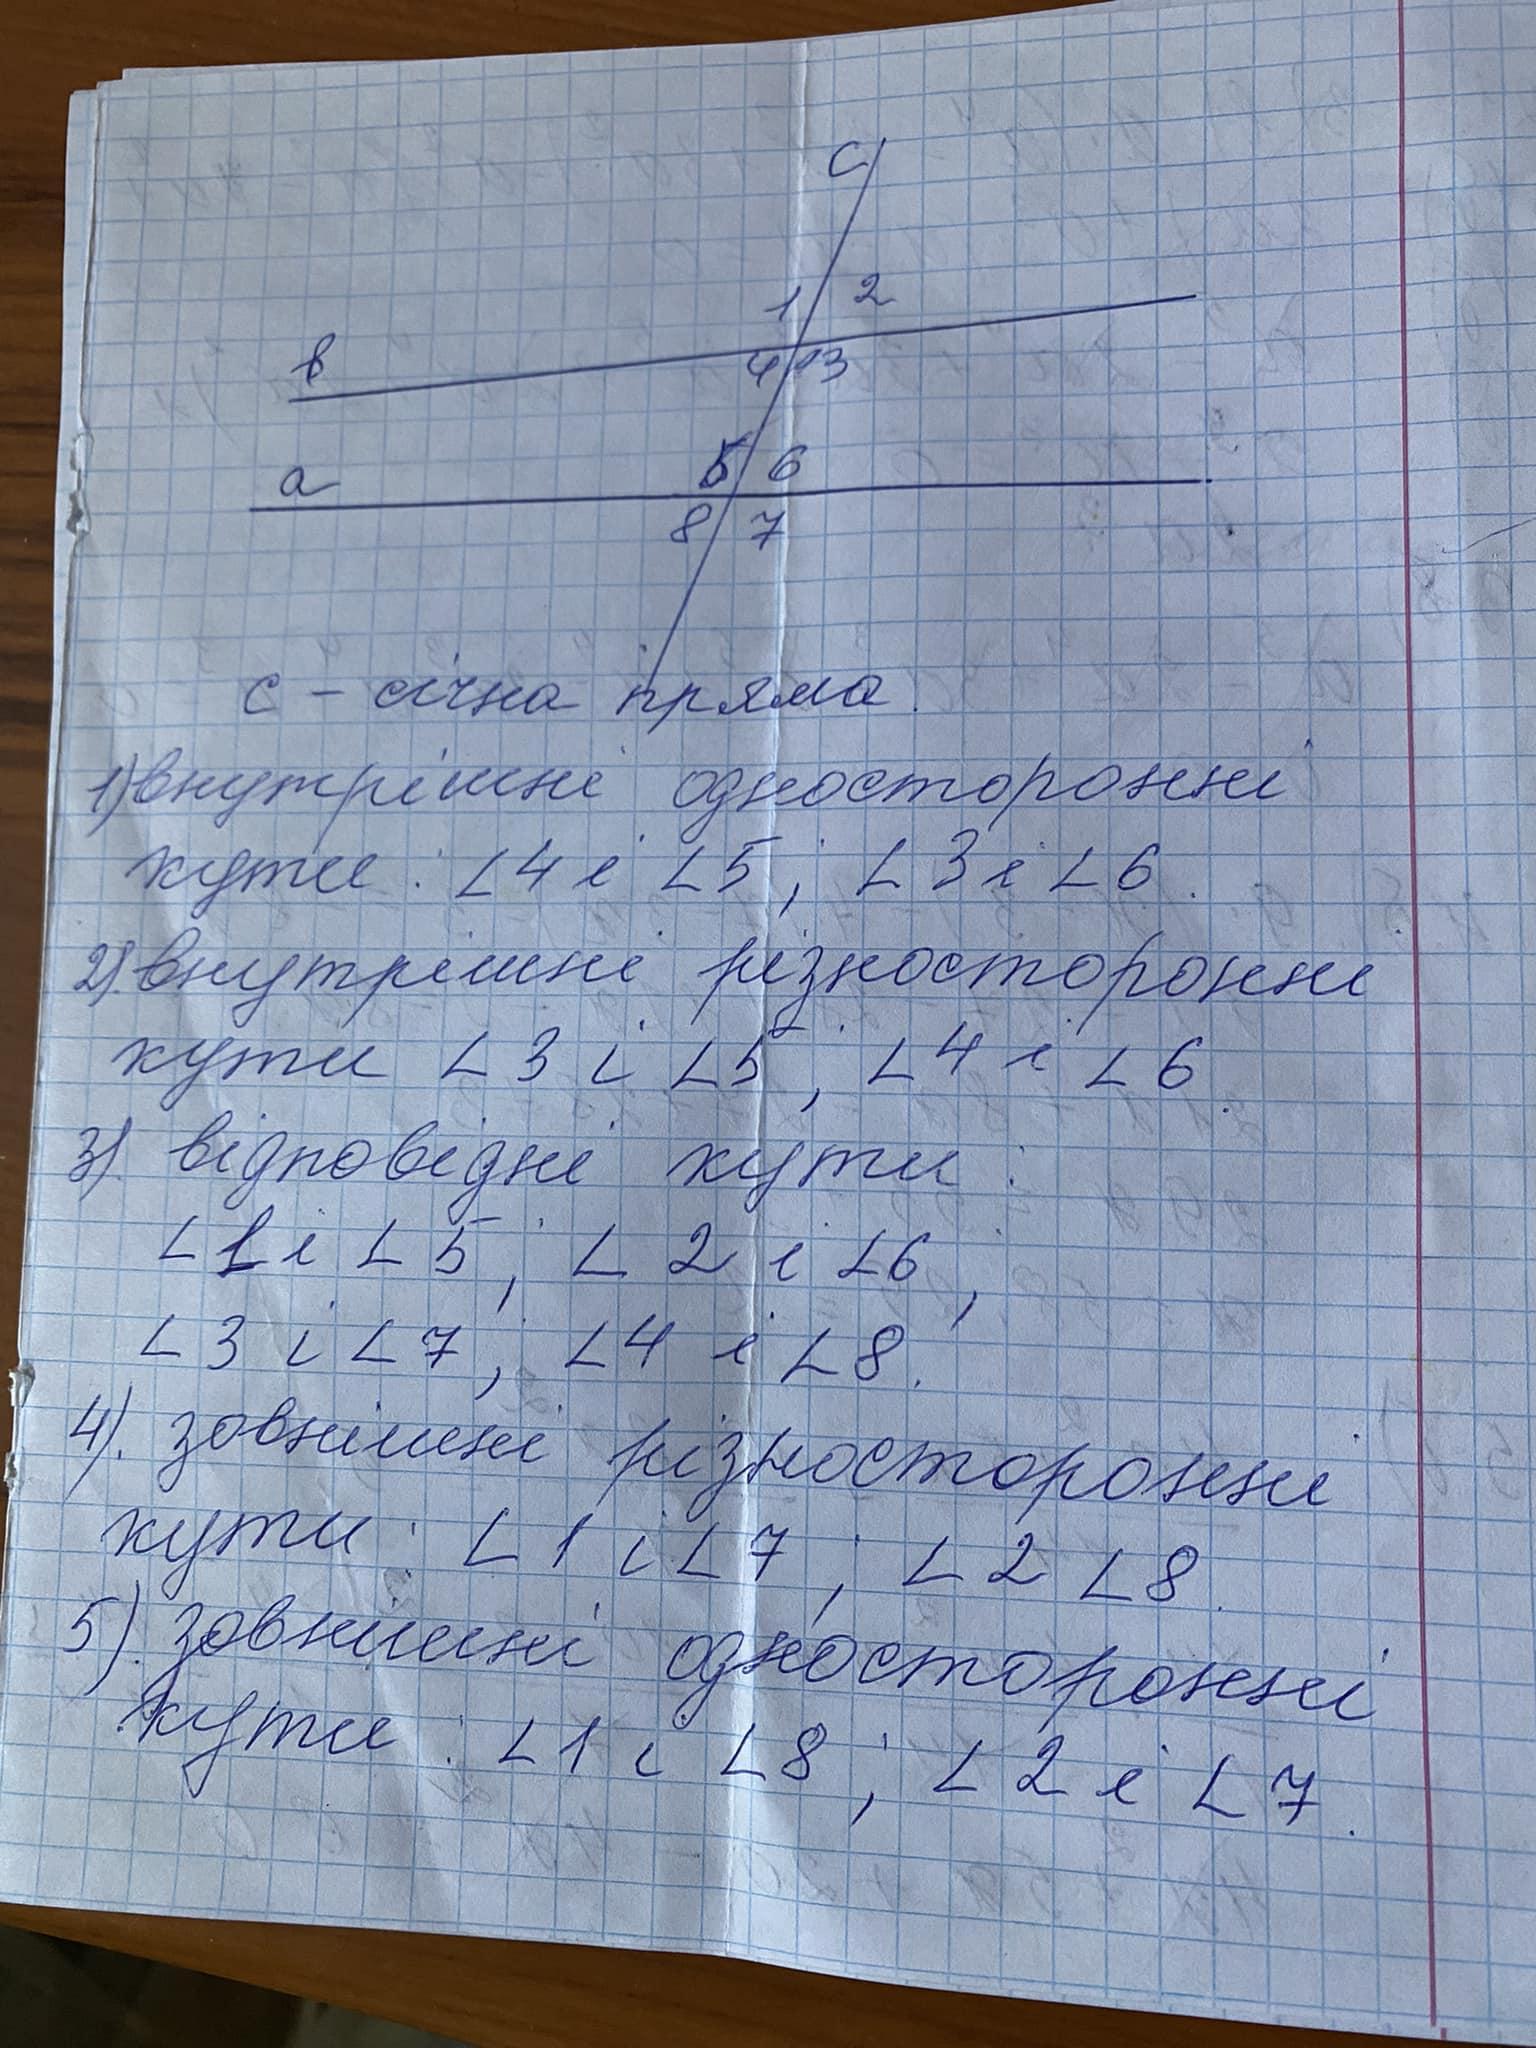 c
1 2
в
4 3
5 6
a
8 7
c - січна пряма.
1) внутрішні односторонні
кути: ∠4 і ∠5; ∠3 і ∠6.
2). внутрішні різносторонні
кути ∠3 і ∠5; ∠4 і ∠6.
3). відповідні кути:
∠1 і ∠5; ∠2 і ∠6;
∠3 і ∠7; ∠4 і ∠8.
4). зовнішні різносторонні
кути: ∠1 і ∠7; ∠2 ∠8.
5). зовнішні односторонні
кути: ∠1 і ∠8; ∠2 і ∠7.